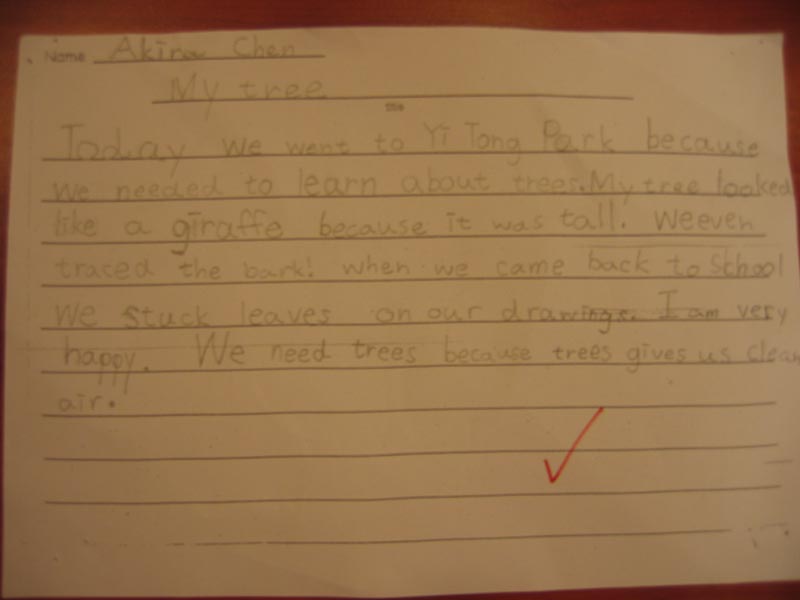 Name Akira Chen
My tree
title
Today we went to Yi Tong Park because
we needed to learn about trees. My tree looked
like a giraffe because it was tall. We even
traced the bark! when we came back to School
we stuck leaves on our drawings. I am very
happy. We need trees because trees gives us clean
air.